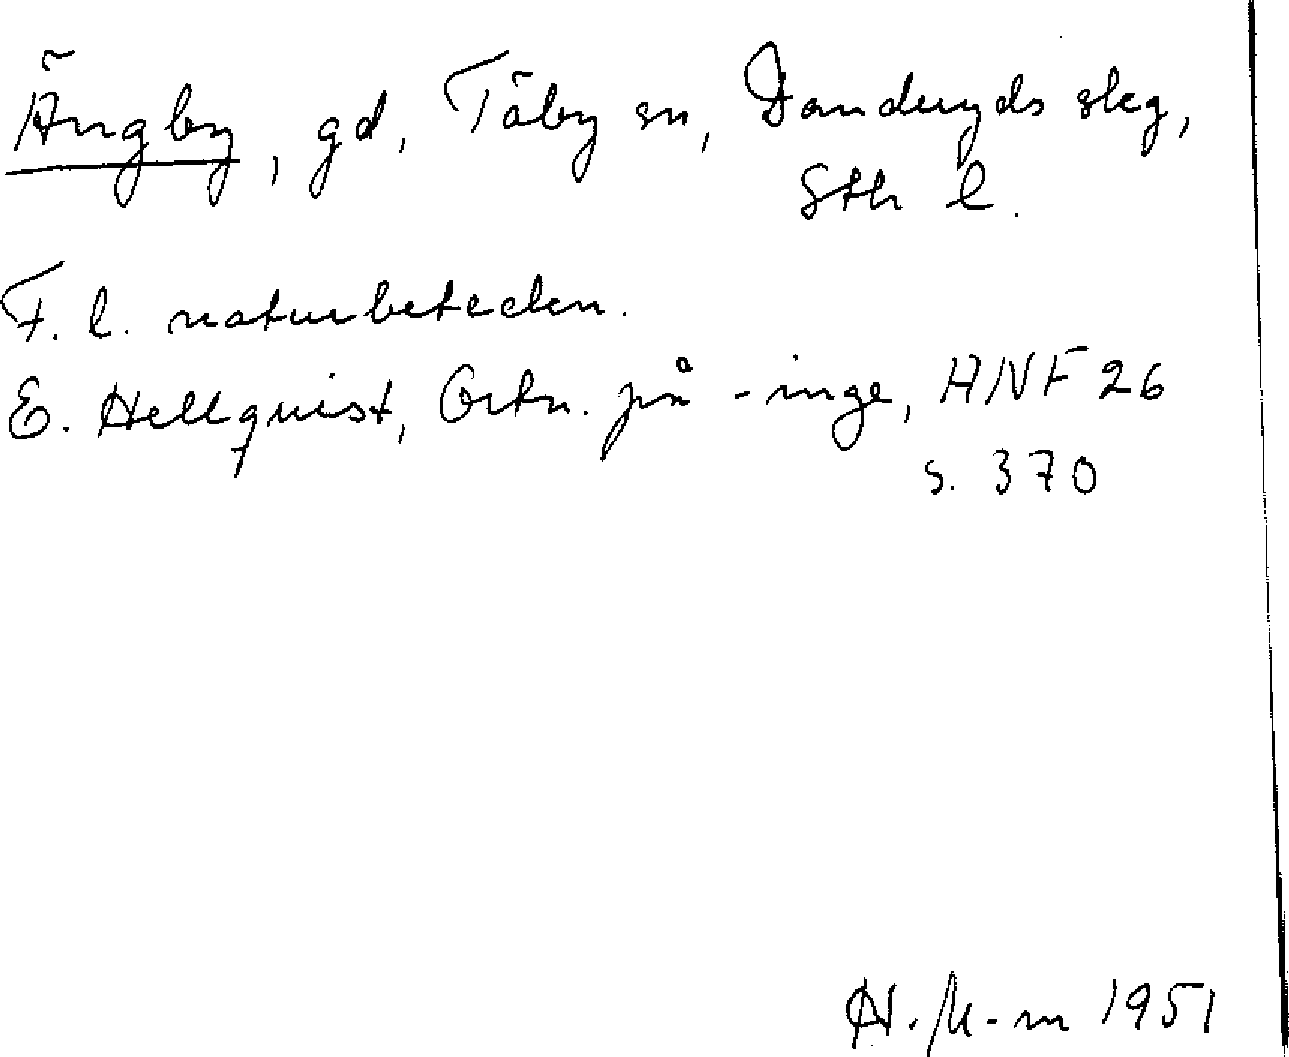 Ängby, gd, Täby sn, Danderyds skg,
Sth l.
F. l. naturbeteckn.
E. Hellquist, Ortn. på -inge, HNF 26
s. 370
H. M-m 1951